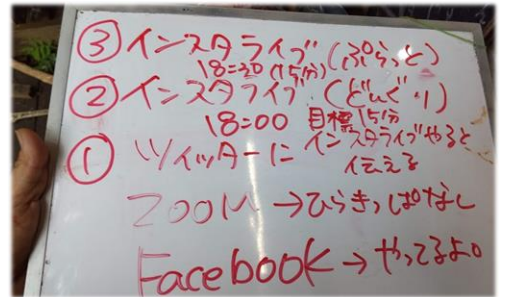 ③インスタライブ(ぷらっと)
18=30(15分)
②インスタライブ(どんぐり)
18=00 目標15分
①ツイッターにインスタライブやると
伝える
ZOOM→ひらきっぱなし
Facebook→やってるよ。